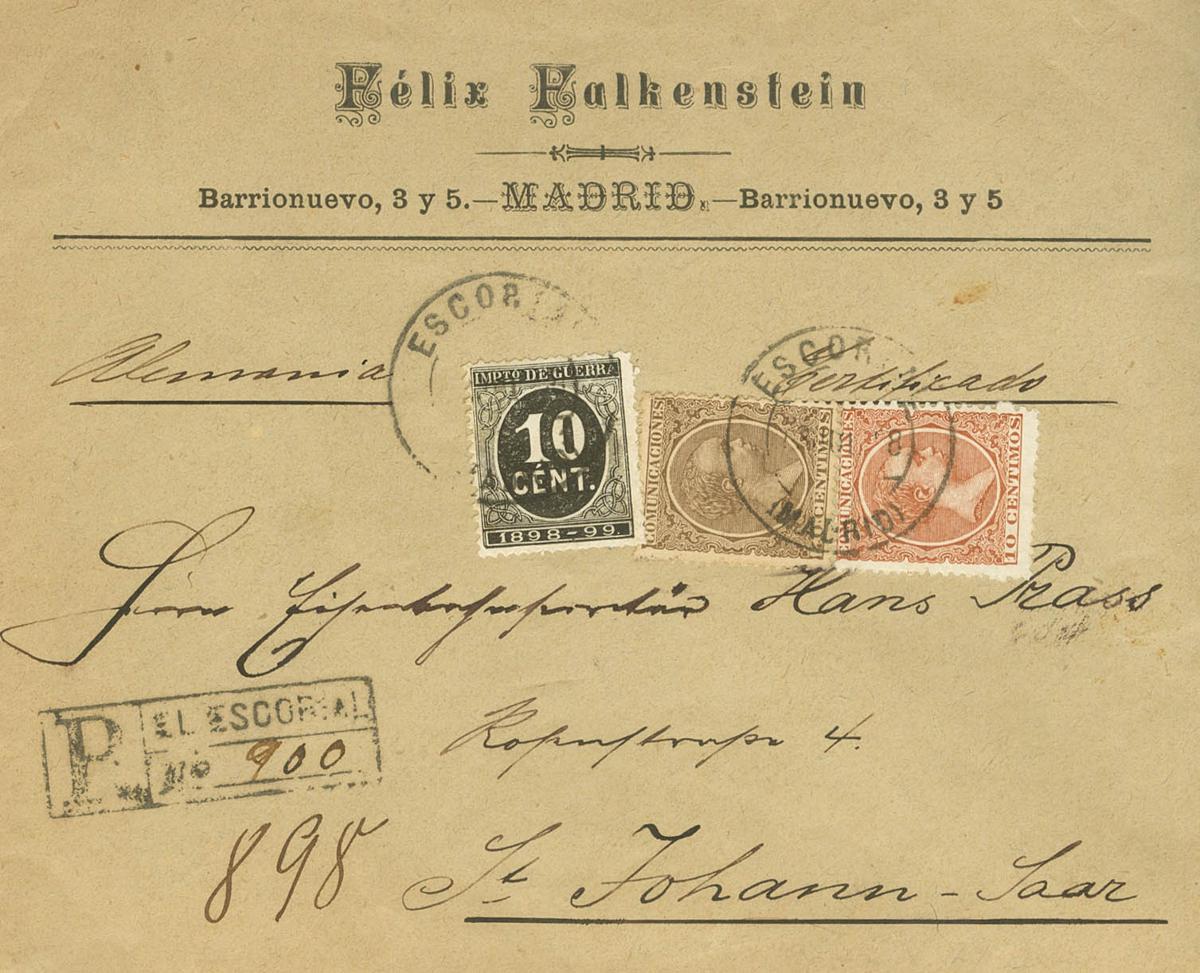 Félix Falkenstein
Barrionuevo, 3 y 5.—MADRID.—Barrionuevo, 3 y 5
Alemania
Certificado
ESCORIAL
ESCORIAL
(MADRID)
IMPTO DE GUERRA
10
CÉNT.
1898-99.
COMUNICACIONES
CENTIMOS
COMUNICACIONES
10 CENTIMOS
Herrn Eisenbahnsecretär Hans Prass
R
EL ESCORIAL
No 900
Rosenstrasse 4.
898
St Johann - Saar